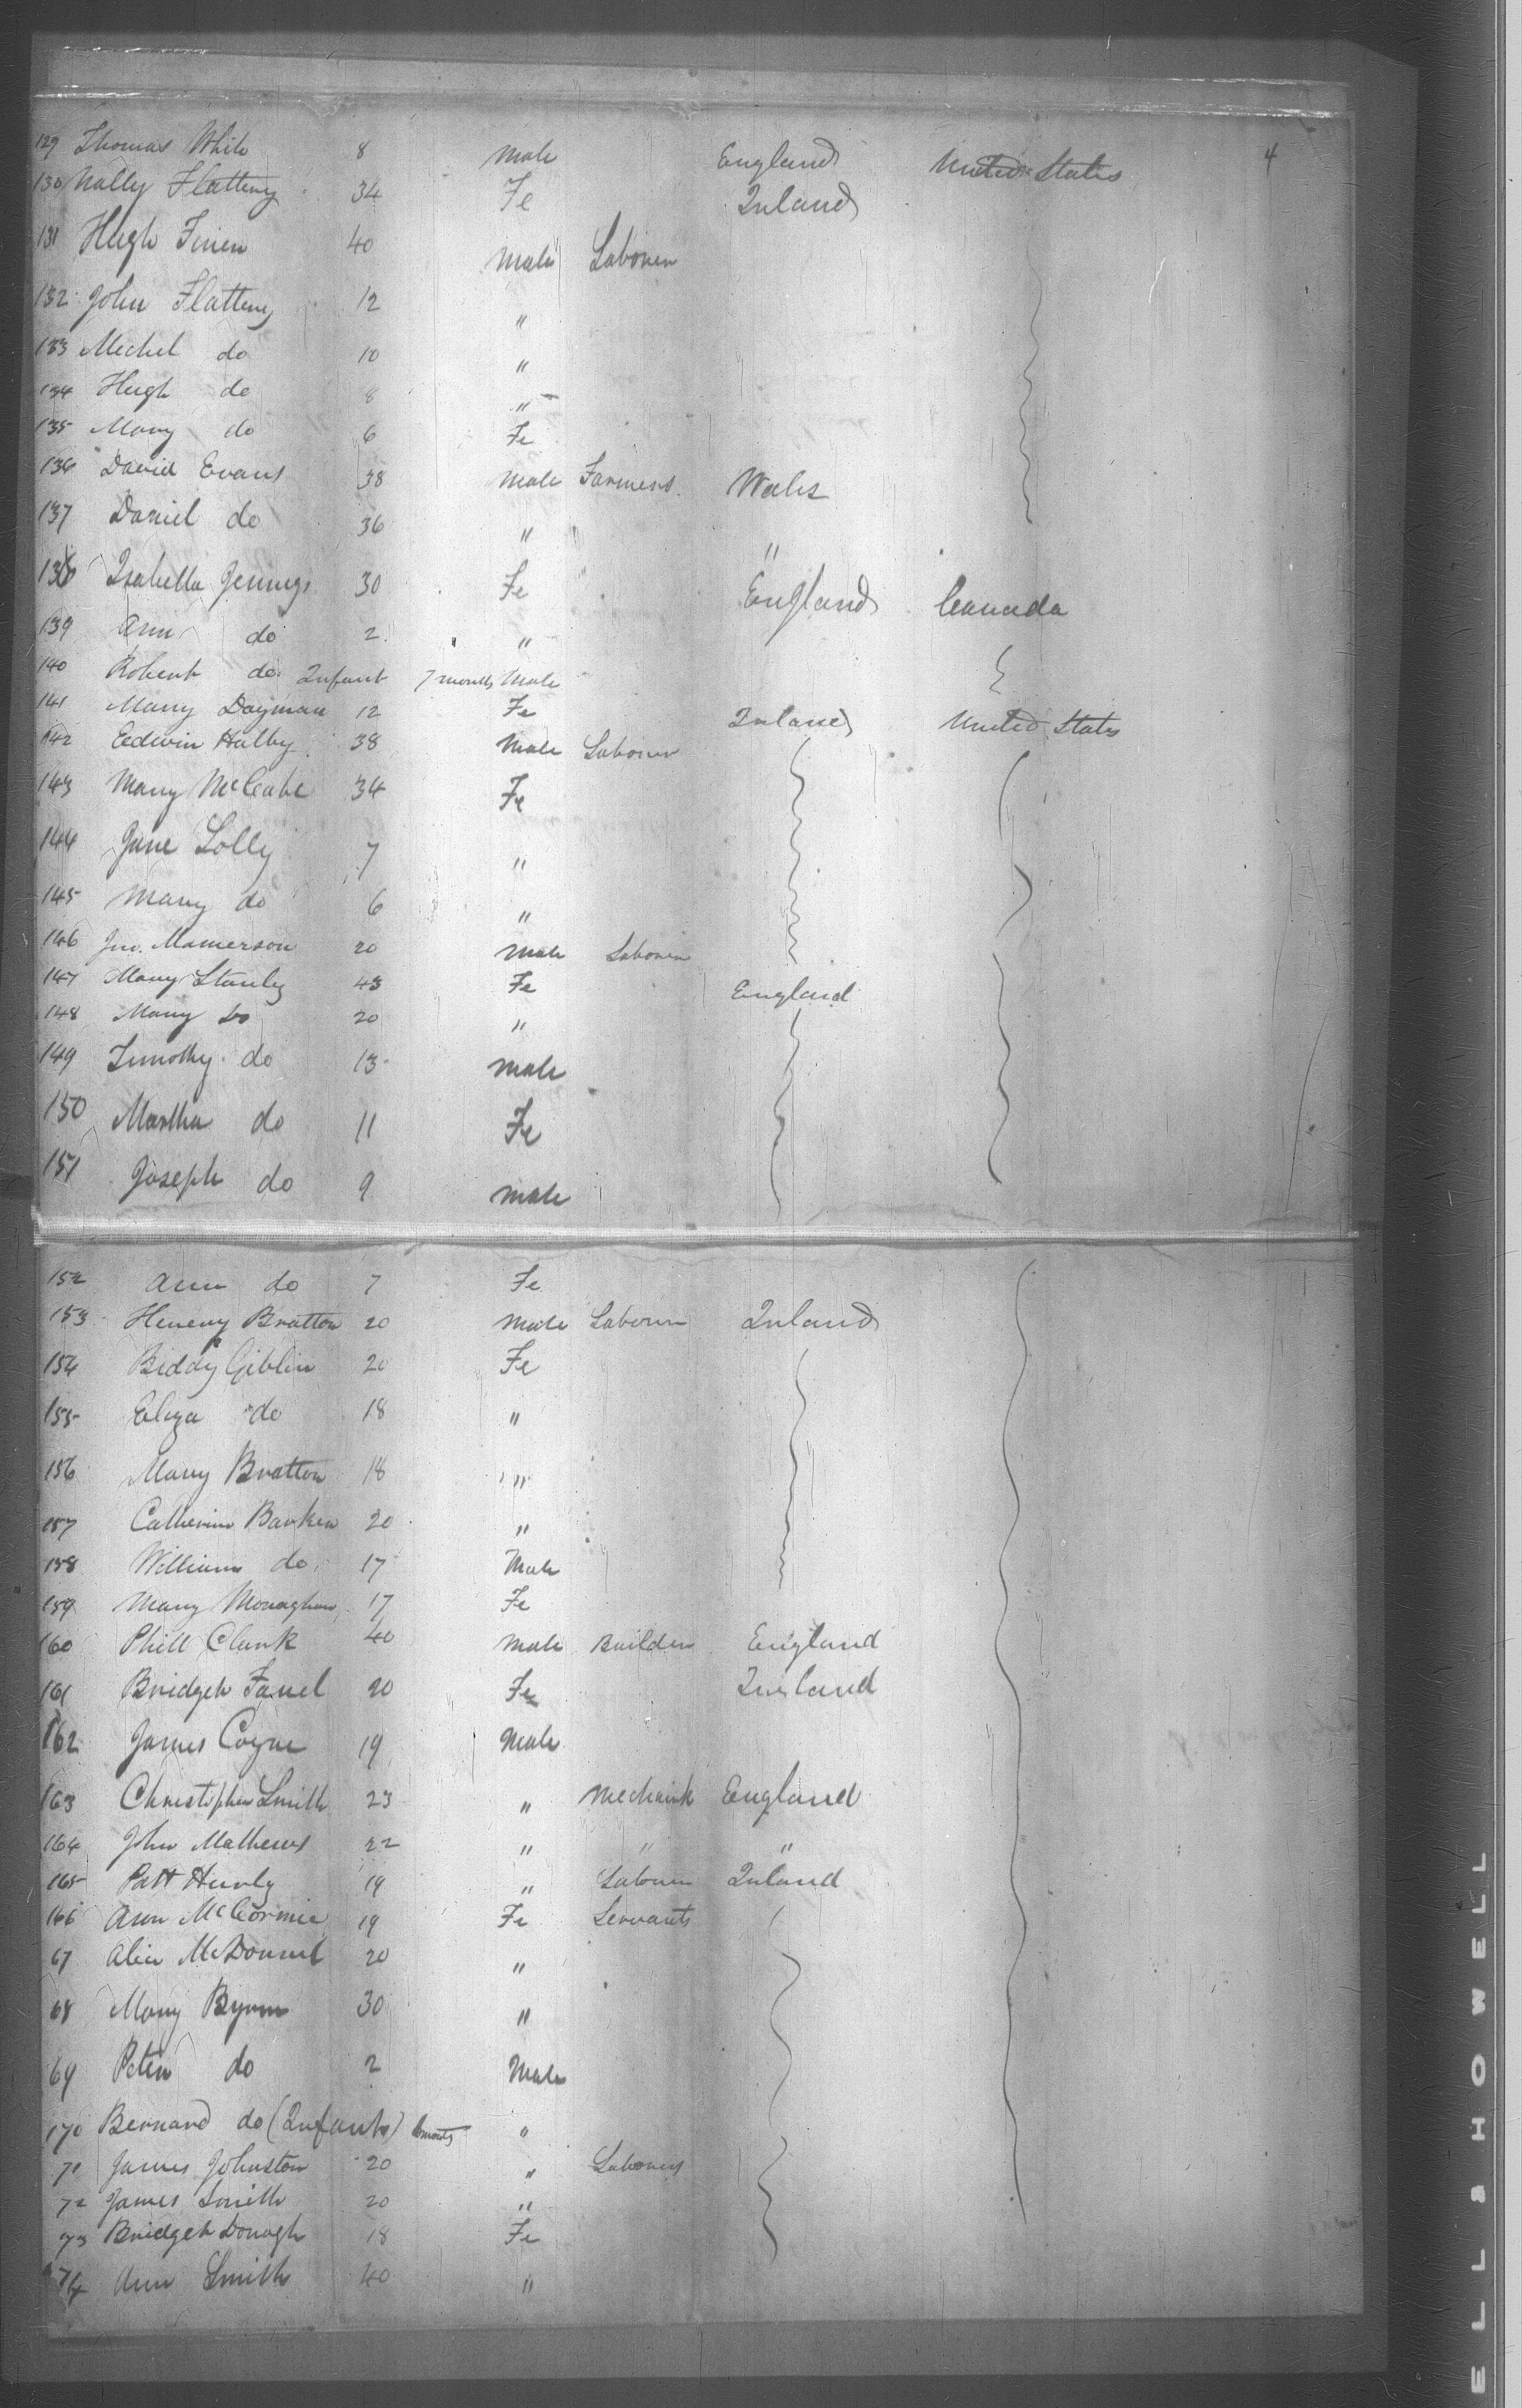 129 Thomas White 8 Male England United States 4
130 Nally Flattery 34 Fe Ireland
131 Hugh Finen 40 Male Labourer
132 John Flattery 12 "
133 Michel do 10 "
134 Hugh do 8 "
135 Mary do 6 Fe
136 David Evans 38 Male Farmers Wales
137 Daniel do 36 " " "
138 Isabella Jennings 30 Fe " England Canada
139 Ann do 2 "
140 Robert do Infant 7 months Male
141 Mary Dayman 12 Fe Ireland United States
142 Edwin Halby 38 Male Labourer
143 Mary McCabe 34 Fe
144 Jane Lolly 7 "
145 Mary do 6 "
146 Jno. Mamerson 20 Male Labourer
147 Mary Stanley 43 Fe England
148 Mary Do 20 "
149 Timothy do 13 Male
150 Martha do 11 Fe
151 Joseph do 9 Male
152 Ann do 7 Fe
153 Henery Bratton 20 Male Labourer Ireland
154 Biddy Giblin 20 Fe
155 Eliza do 18 "
156 Mary Bratton 18 "
157 Catherine Barker 20 "
158 William do 17 Male
159 Mary Monaghan 17 Fe
160 Phill Clark 40 Male Builder England
161 Bridget Farrel 20 Fe Ireland
162 James Coyne 19 Male
163 Christopher Smith 23 " Mechanick England
164 John Mathews 22 " " "
165 Patt Hurly 19 " Labourer Ireland
166 Ann McCormic 19 Fe Servants
67 Alice McDonnel 20 "
68 Mary Byrne 30 "
69 Peter do 2 Male
170 Bernard do (Infant) months "
71 James Johnston 20 " Labourers
72 James Smith 20 "
73 Bridget Donogh 18 Fe
74 Ann Smith 40 "
ELL & HOWELL